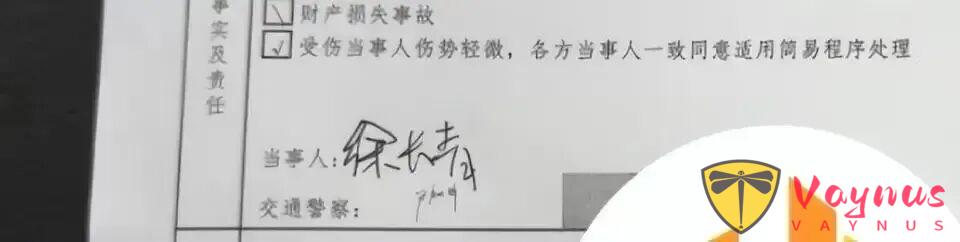 事实及责任
财产损失事故
√ 受伤当事人伤势轻微，各方当事人一致同意适用简易程序处理
当事人：徐长青
交通警察：
Vaynus
VAYNUS